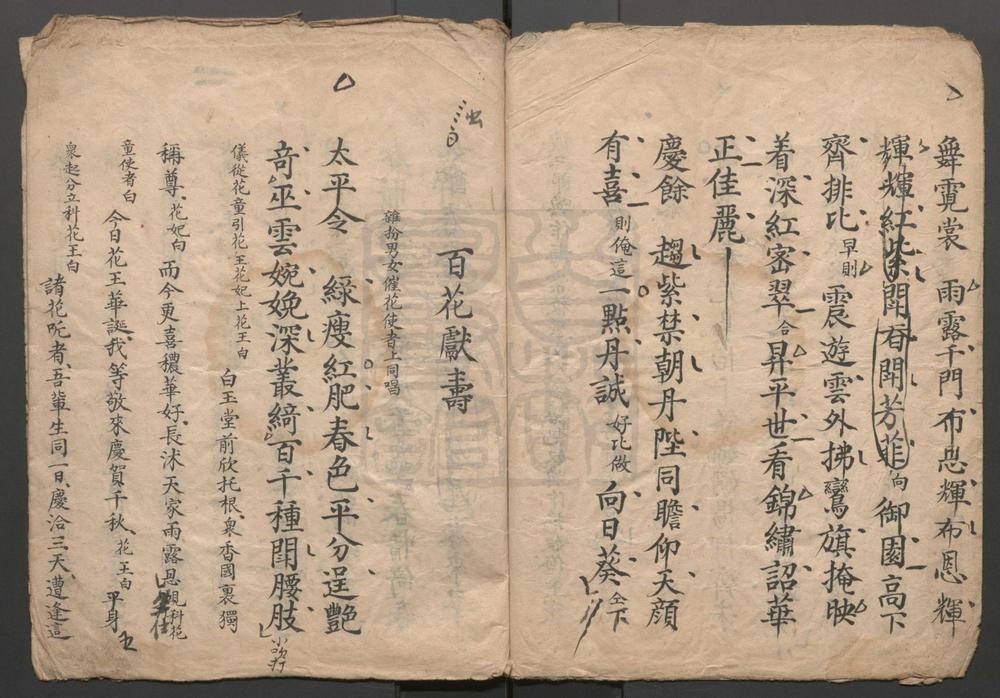 舞霓裳　雨露千門布恩輝布恩輝
輝輝紅紫鬪春開芳菲向御園高下
齊排比早則震遊雲外拂鸞旗掩映
着深紅密翠合昇平世看錦繡韶華
正佳麗
慶餘　趨紫禁朝丹陛同瞻仰天顔
有喜則俺這一點丹誠好比做向日葵全下
百花獻壽
雜扮男女催花使者上同唱
太平令　綠瘦紅肥春色平分逞艷
奇巫雲婉娩深叢綺百千種鬪腰肢
儀從花童引花王花妃上花王白　白玉堂前欣托根衆香國裏獨
稱尊花妃白　而今更喜穠華好長沐天家雨露恩
童使者白　今日花王華誕我等敬來慶賀千秋花王白　平身
衆起分立科花王白　諸花听者吾輩生同一日慶洽三天遭逢這